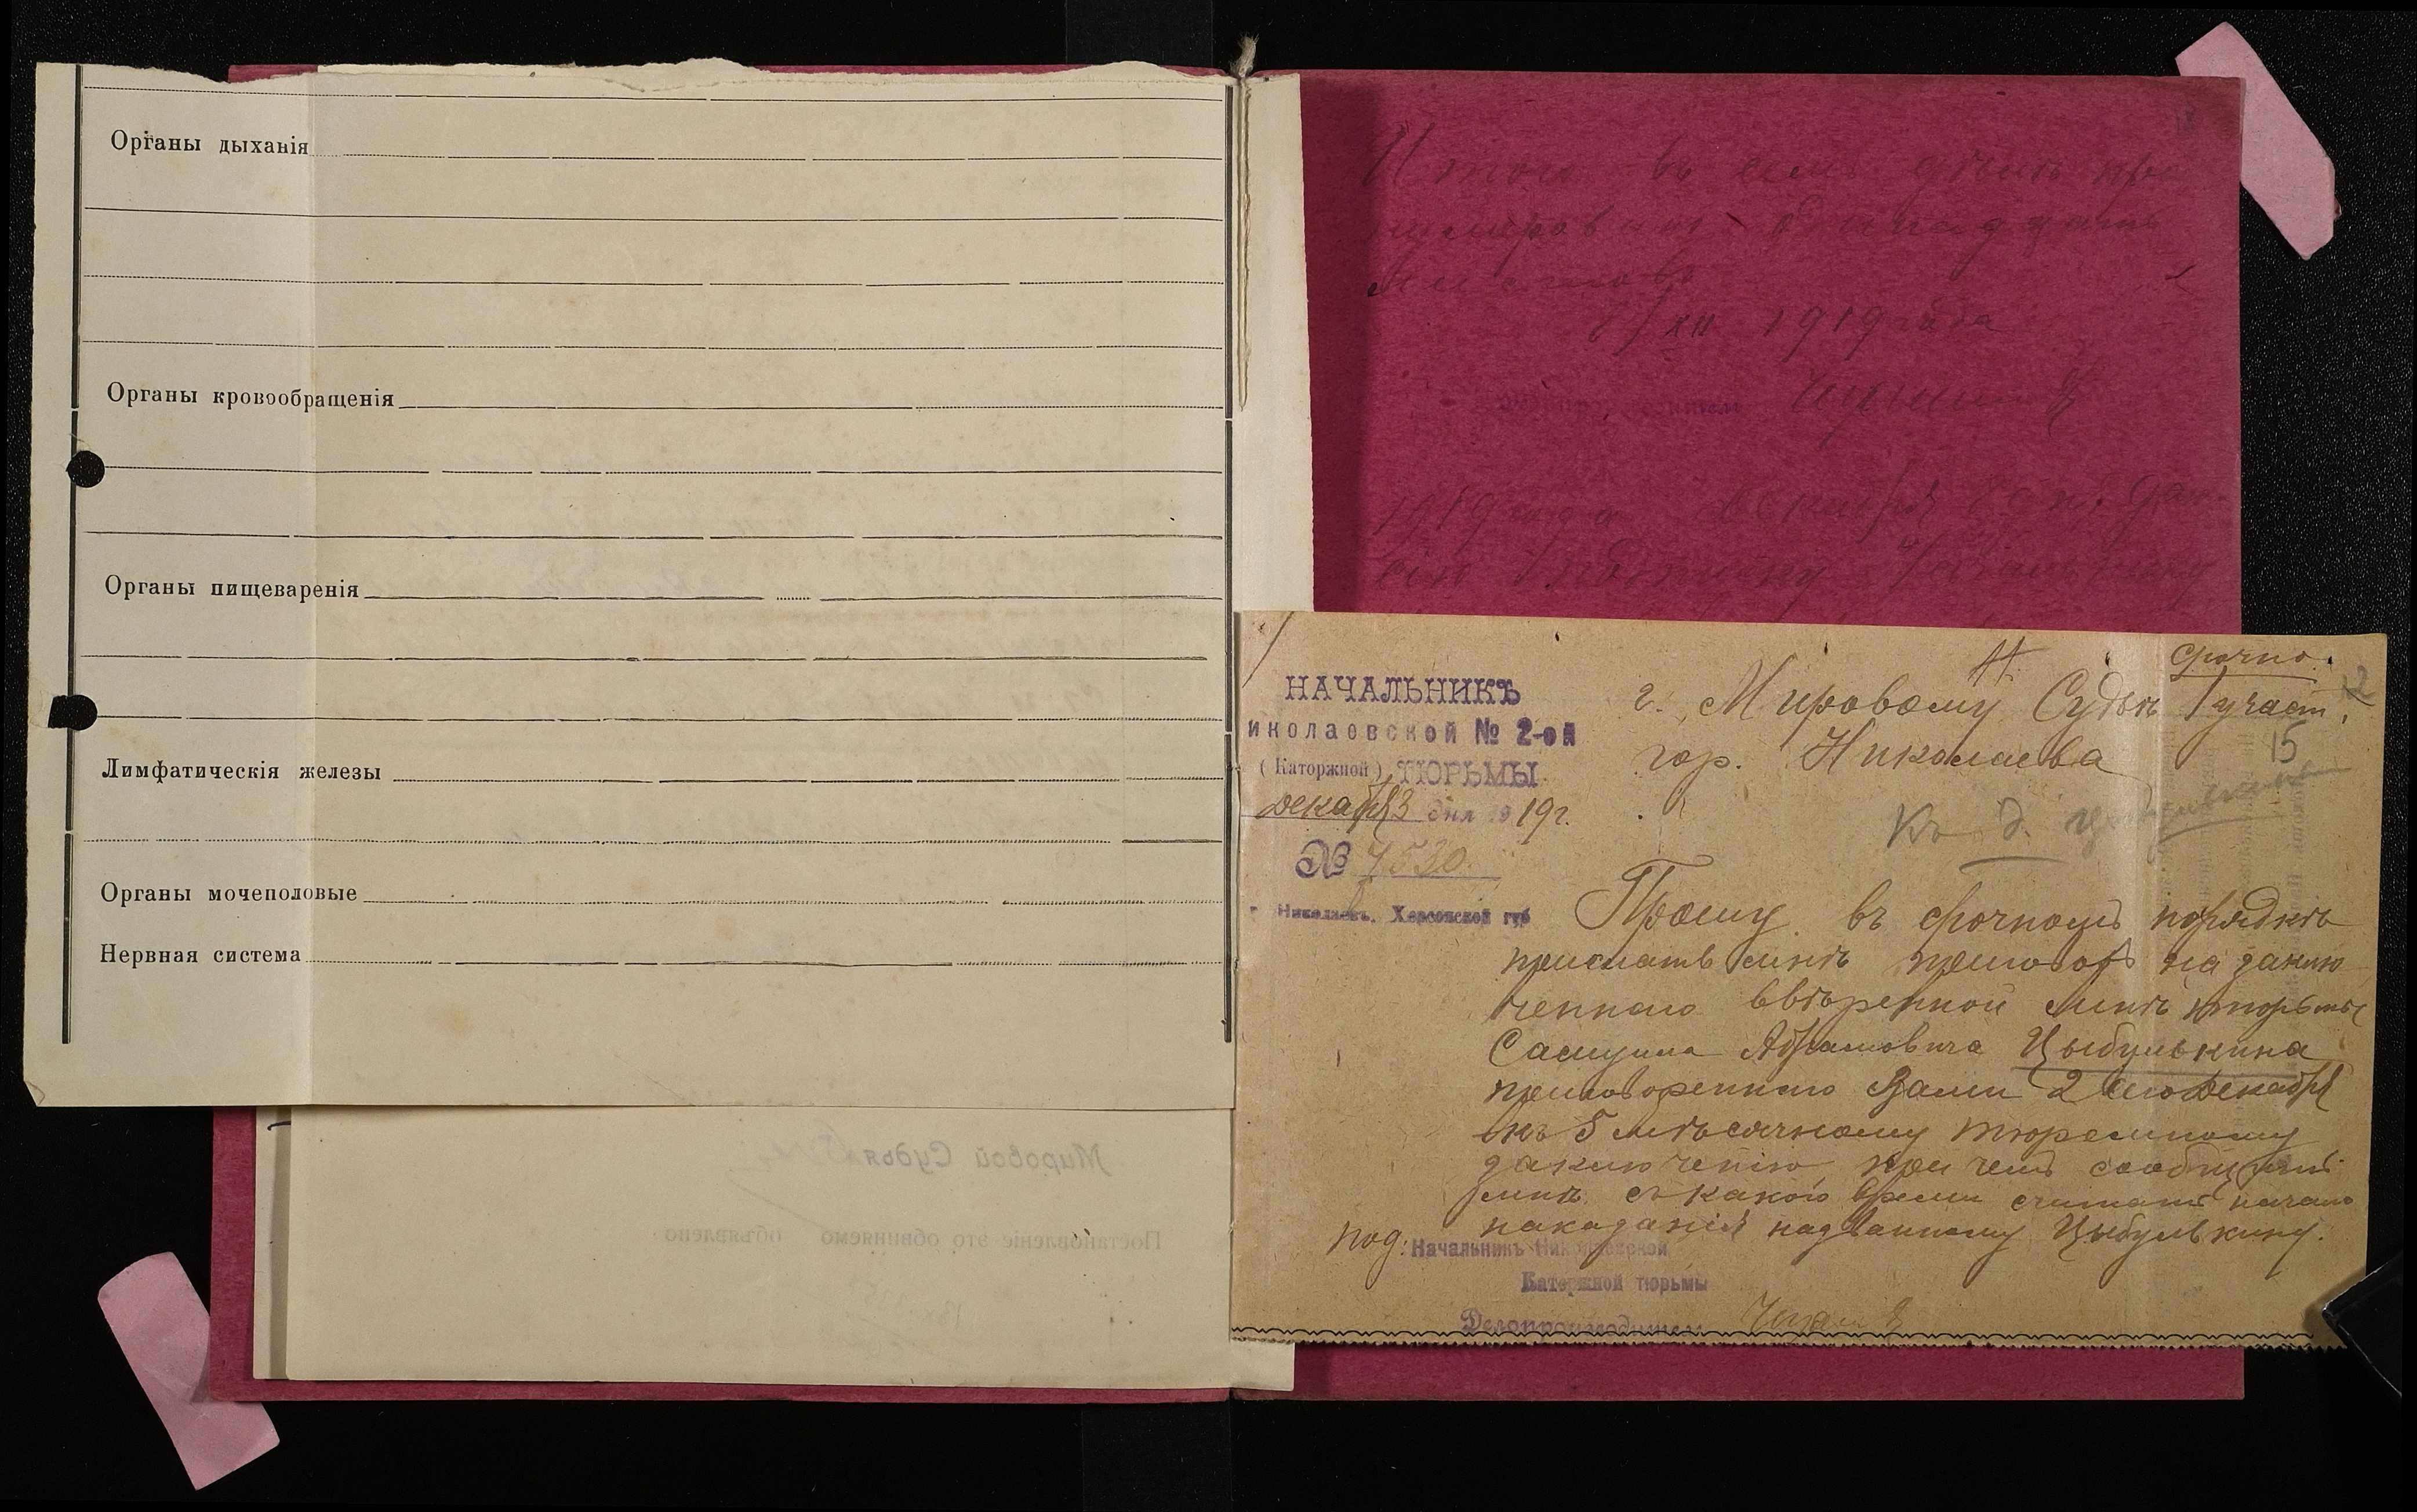 Органы дыханія
Органы кровообращенія
Органы пищеваренія
Лимфатическія железы
Органы мочеполовые
Нервная система
Мировой Судья
Постановленіе это обвиняемо объявлено
Итого въ семъ дѣлѣ про
нумеровано одинадцать
листовъ
8/XII 1919 года
1919 года декабря 8
сію
Срочно.
12
НАЧАЛЬНИКЪ
иколаевской № 2-ой
(Каторжной) ТЮРЬМЫ
Декабря 3 дня 1919 г.
№ 7530
г. Николаевъ, Херсонской губ
г. Мировому Судьѣ 1 участ.
гор. Николаева
15
Къ д. Цыбулькина
Прошу въ срочномъ порядкѣ
прислать мнѣ приговоръ на заклю
ченнаго ввѣренной мнѣ тюрьмы
Самуила Абрамовича Цыбулькина
приговореннаго Вами 2 сего Декабря
къ 5 мѣсячному тюремному
заключенію, при чемъ сообщить
мнѣ съ какого время считать начало
наказанія названному Цыбулькину.
под: Начальникъ Николаевской
Каторжной тюрьмы
Делопроизводитель